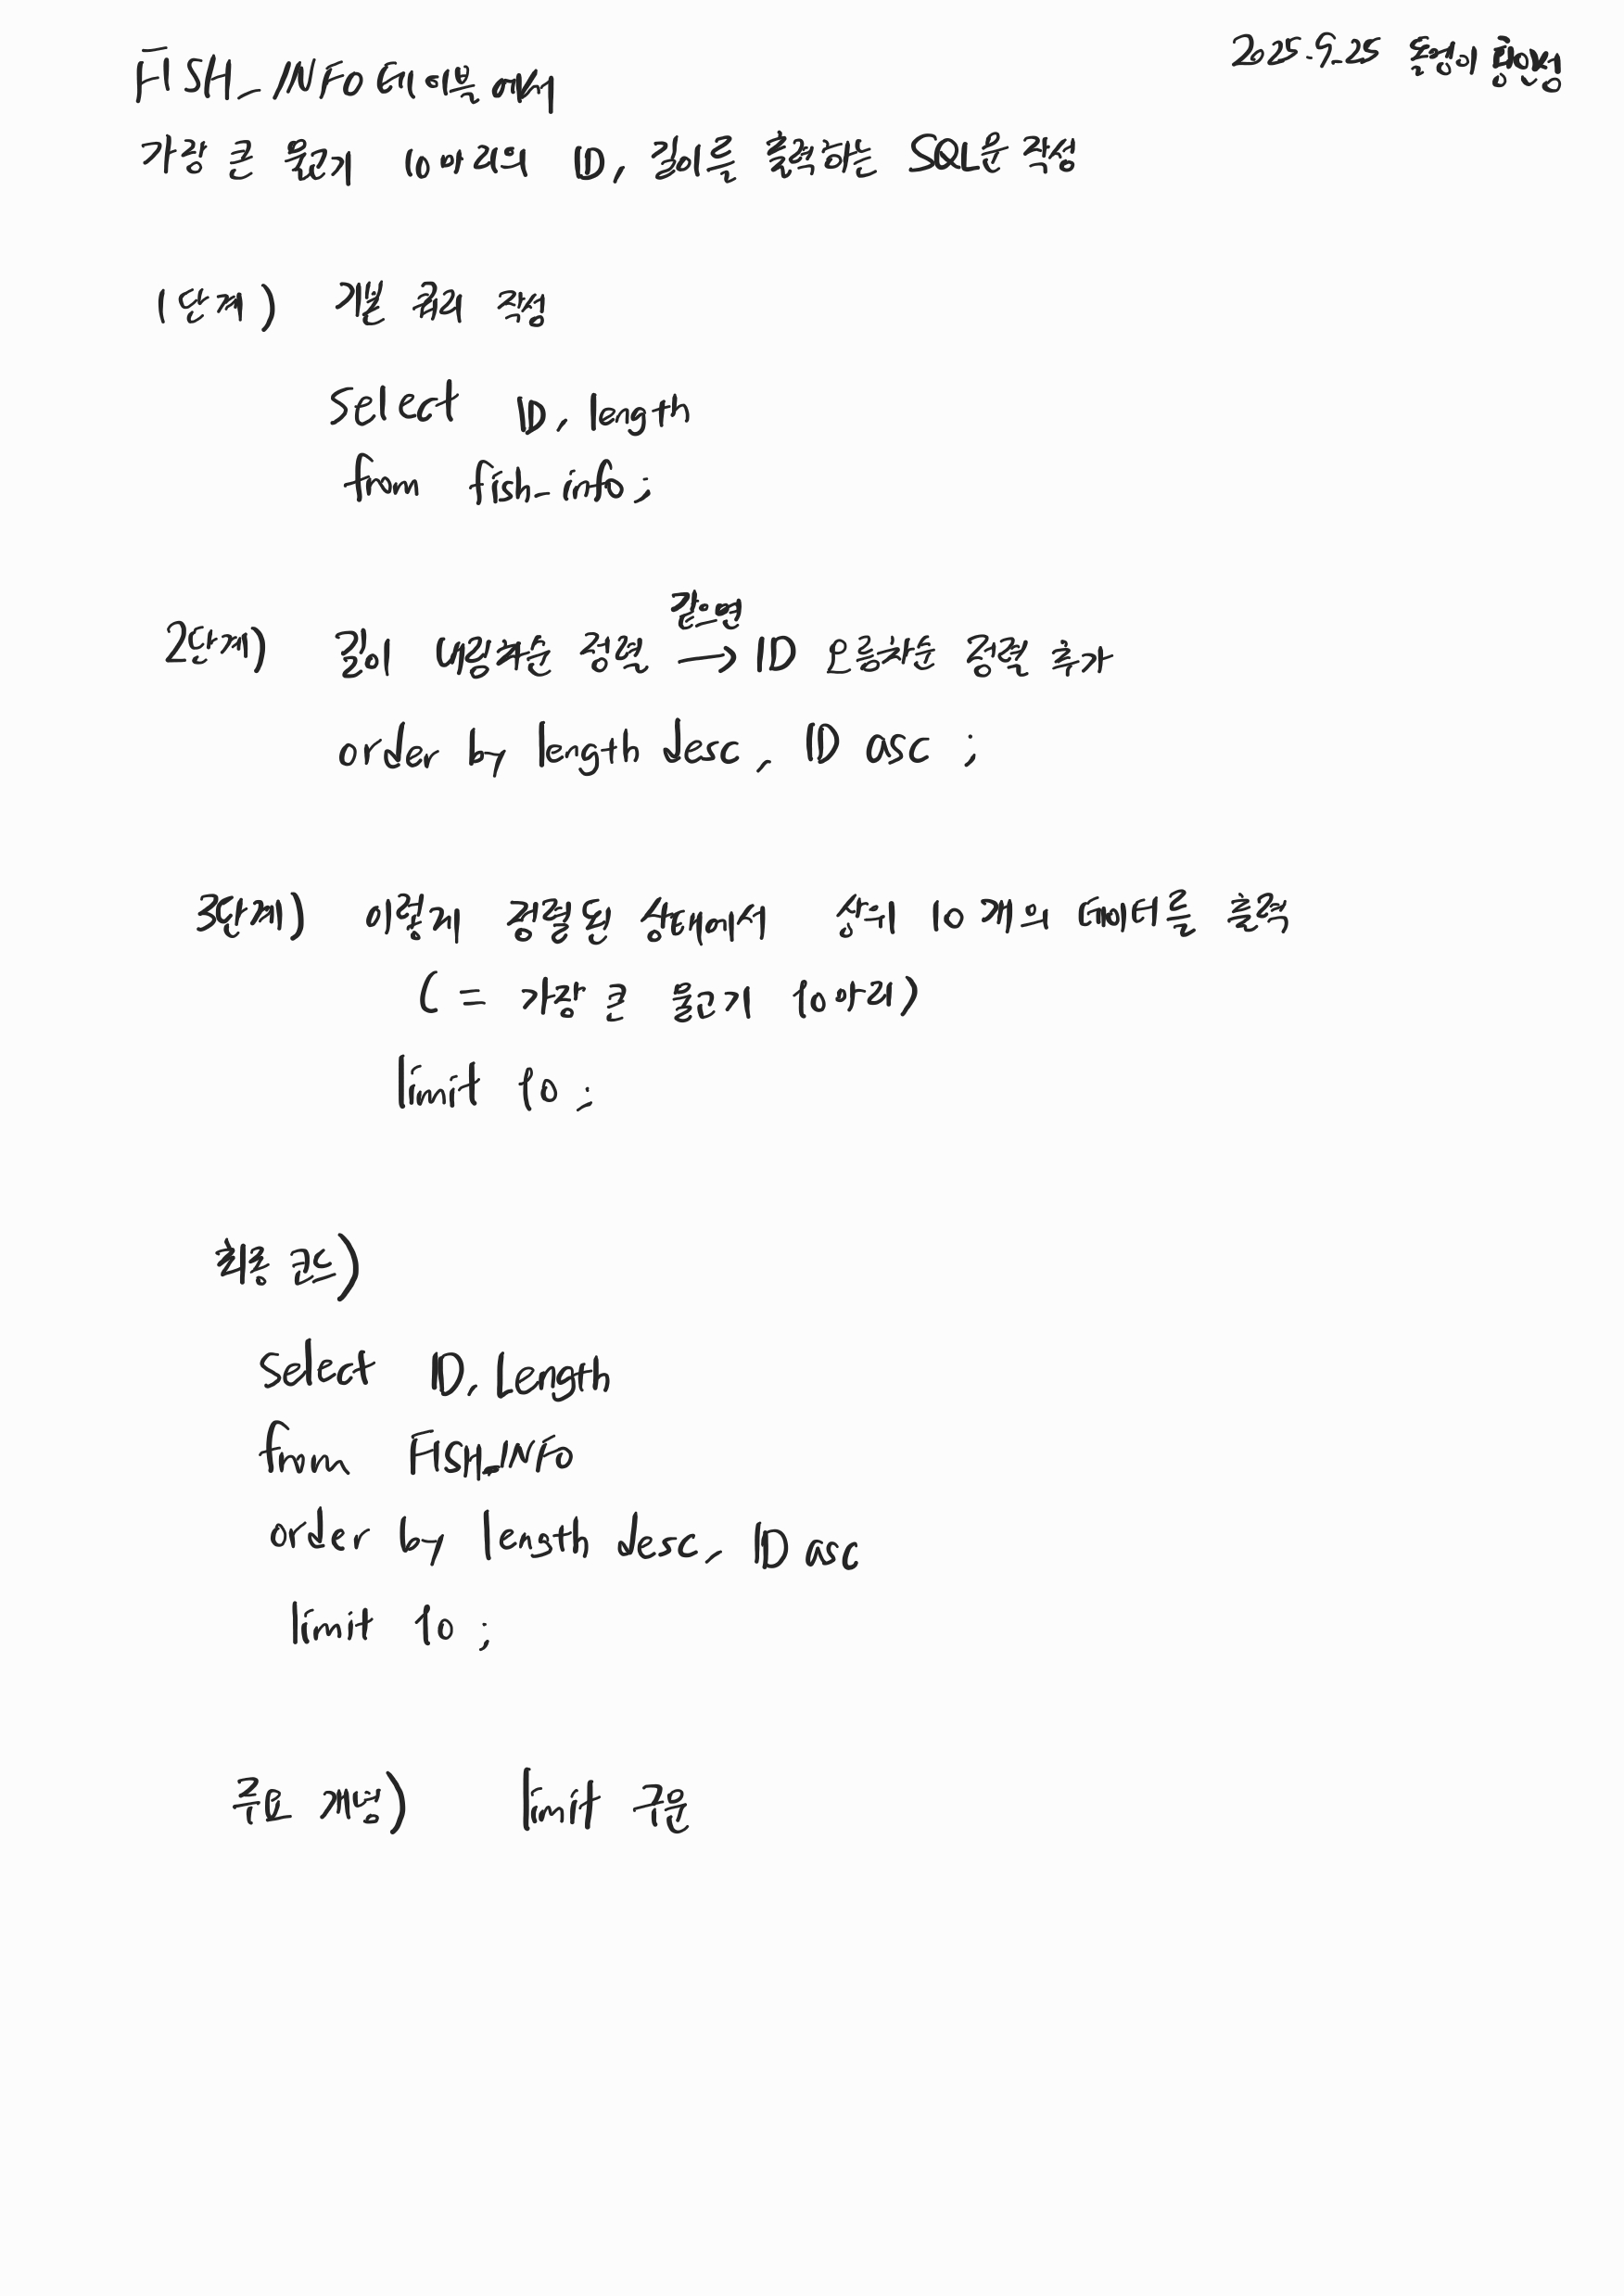 2025.9.25
FISH_INFO 테이블에서
가장 큰 물고기 10마리의 ID, 길이를 출력하는 SQL문 작성
1단계) 기본 쿼리 작성
select ID, length
from fish_info;
같으면
2단계) 길이 내림차순 정렬 → ID 오름차순 정렬 추가
order by length desc, ID asc ;
3단계) 이렇게 정렬된 상태에서 상위 10개의 데이터를 출력
( = 가장 큰 물고기 10마리)
limit 10 ;
최종 코드)
select ID, Length
from FISH_INFO
order by length desc, ID asc
limit 10 ;
주요 개념) limit 구문